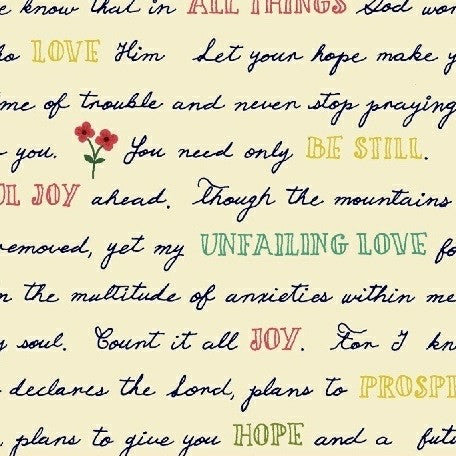 e know that in ALL THINGS God wor
ho LOVE Him Let your hope make y
me of trouble and never stop praying
you. You need only BE STILL.
UL JOY ahead. Though the mountains
removed, yet my UNFAILING LOVE fo
n the multitude of anxieties within me
y soul. Count it all JOY. For I kn
declares the Lord, plans to PROSPE
, plans to give you HOPE and a futu